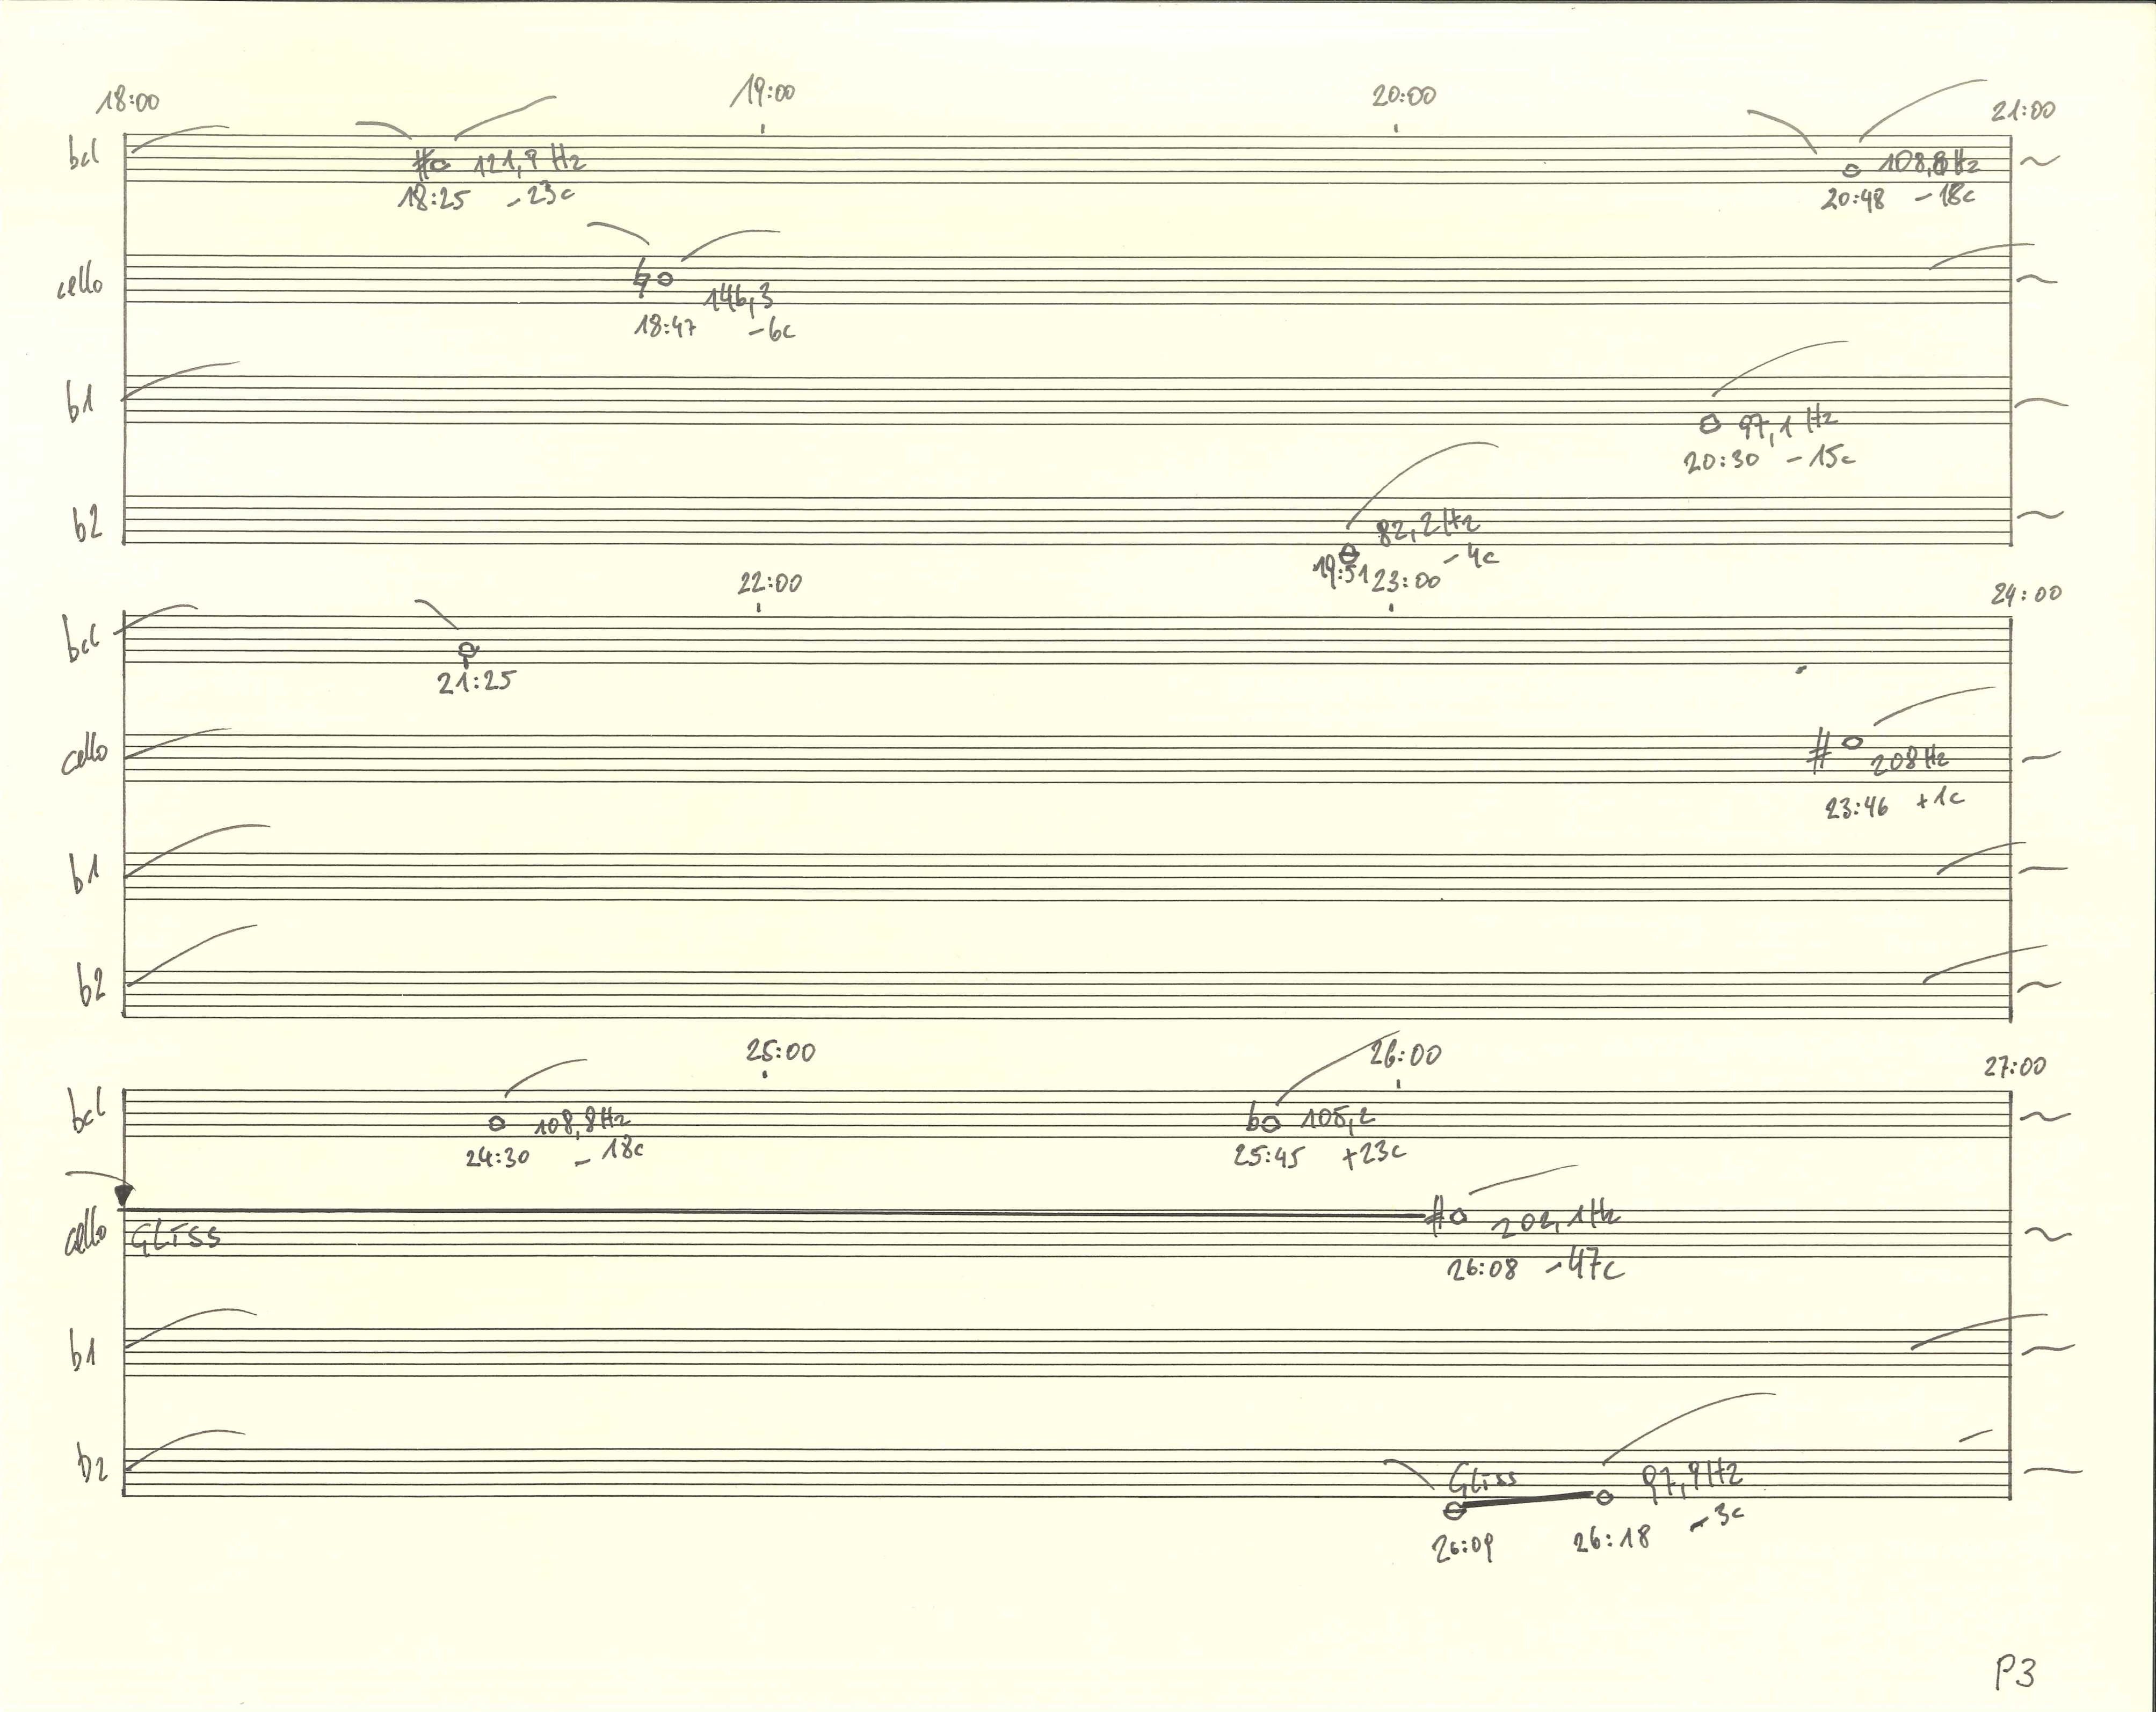 18:00 19:00 20:00 21:00
bcl 121,9 Hz 108,8 Hz
18:25 -23c 20:48 -18c
cello 146,3
18:47 -6c
b1 97,1 Hz
20:30 -15c
b2 82,2 Hz
19:51 -4c
22:00 23:00 24:00
bcl
21:25
cello 208 Hz
23:46 +1c
b1
b2
25:00 26:00 27:00
bcl 108,8 Hz 105,2
24:30 -18c 25:45 +23c
cello Gliss 202,1 Hz
26:08 -47c
b1
b2 Gliss 97,9 Hz
26:09 26:18 -3c
P3